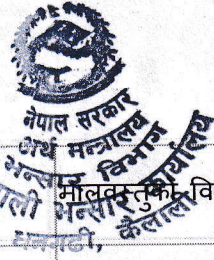 नेपाल सरकार
अर्थ मन्त्रालय
भन्सार विभाग
भन्सार कार्यालय
कैलाली
धनगढी,
मालवस्तुको वि